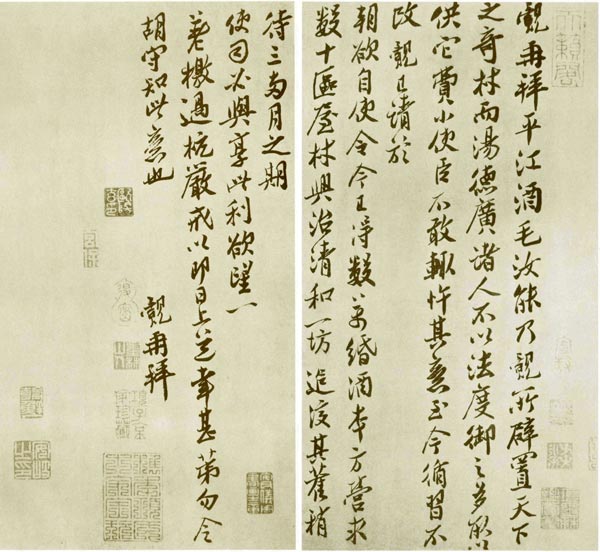 覿再拜平江酒毛汝能乃覿所辟置天下
之奇材而湯德廣諸人不以法度御之多取以
供它費小使臣不敢輒忤其意至今循習不
改覿已請於
朝欲自使令今已得數萬緡酒本方營求
數十區屋材興治清和一坊追復其舊稍
待三兩月之期
使司必與享此利欲望一
檄過杭嚴戒以即日上道幸甚第勿令
胡守知此意也
覿再拜